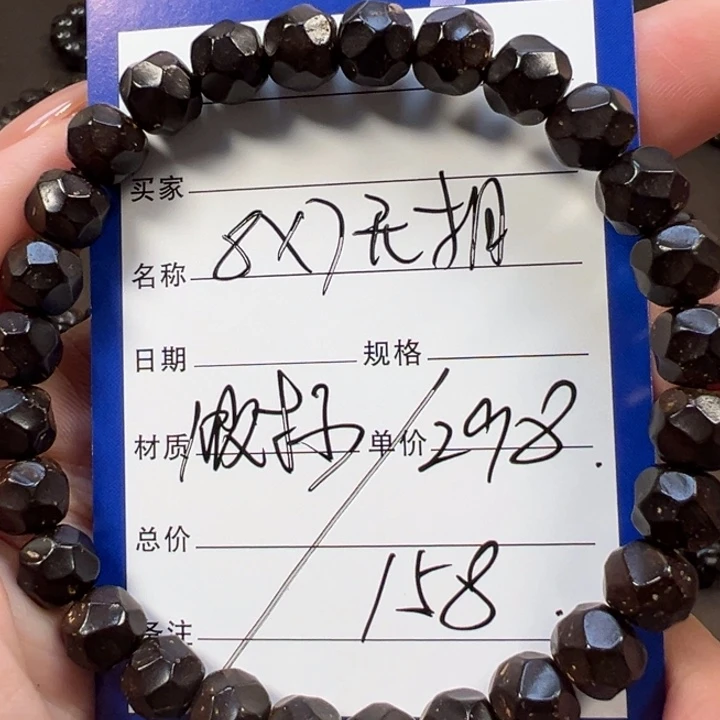 买家
名称 8X7无相
日期 规格
材质 单价 298.
总价
158.
备注